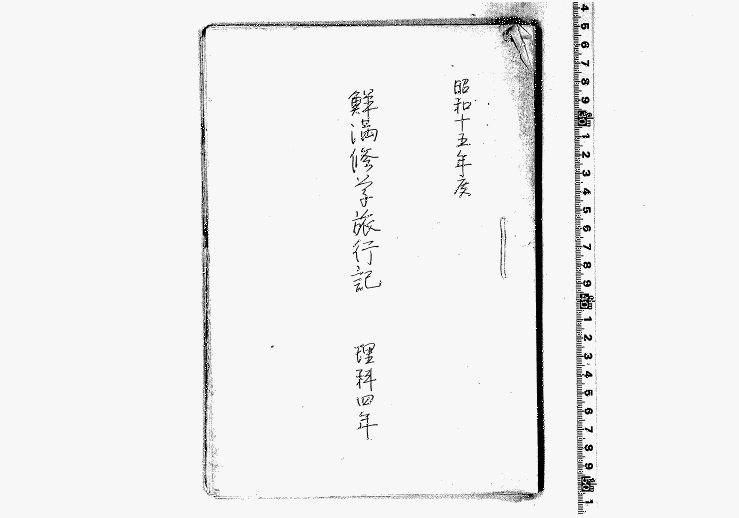 昭和十五年度
鮮満修学旅行記 理科四年
4 5 6 7 8 9 1 2 3 4 5 6 7 8 9 1 2 3 4 5 6 7 8 9 1